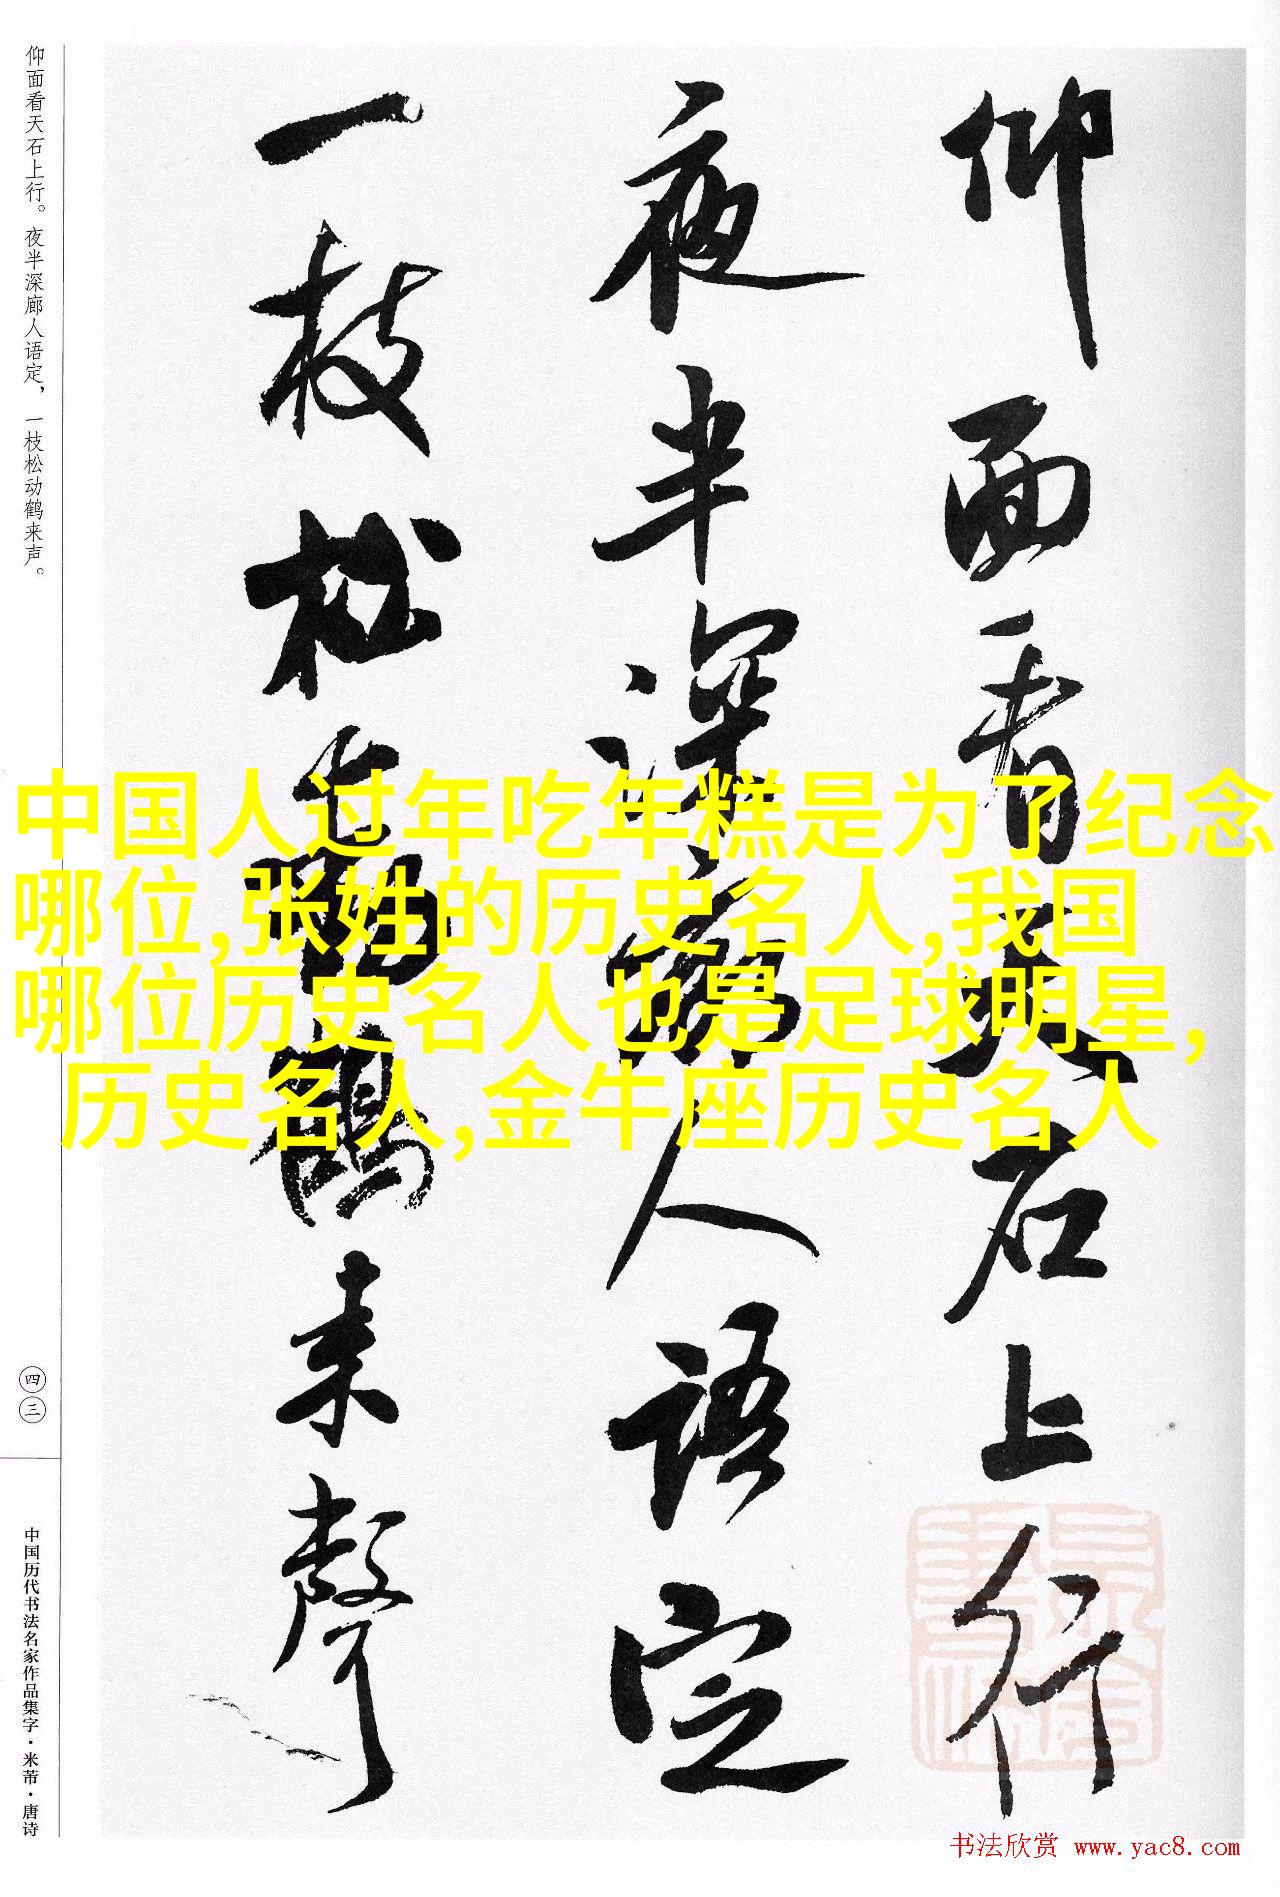 仰面看天石上行
夜半深廊人语定
一枝松动鹤来声
仰面看天石上行。夜半深廊人语定，一枝松动鹤来声。
四三
中国历代书法名家作品集字·米芾·唐诗
中国人过年吃年糕是为了纪念
哪位,张姓的历史名人,我国
哪位历史名人也是足球明星,
历史名人,金牛座历史名人
书法欣赏 www.yac8.com